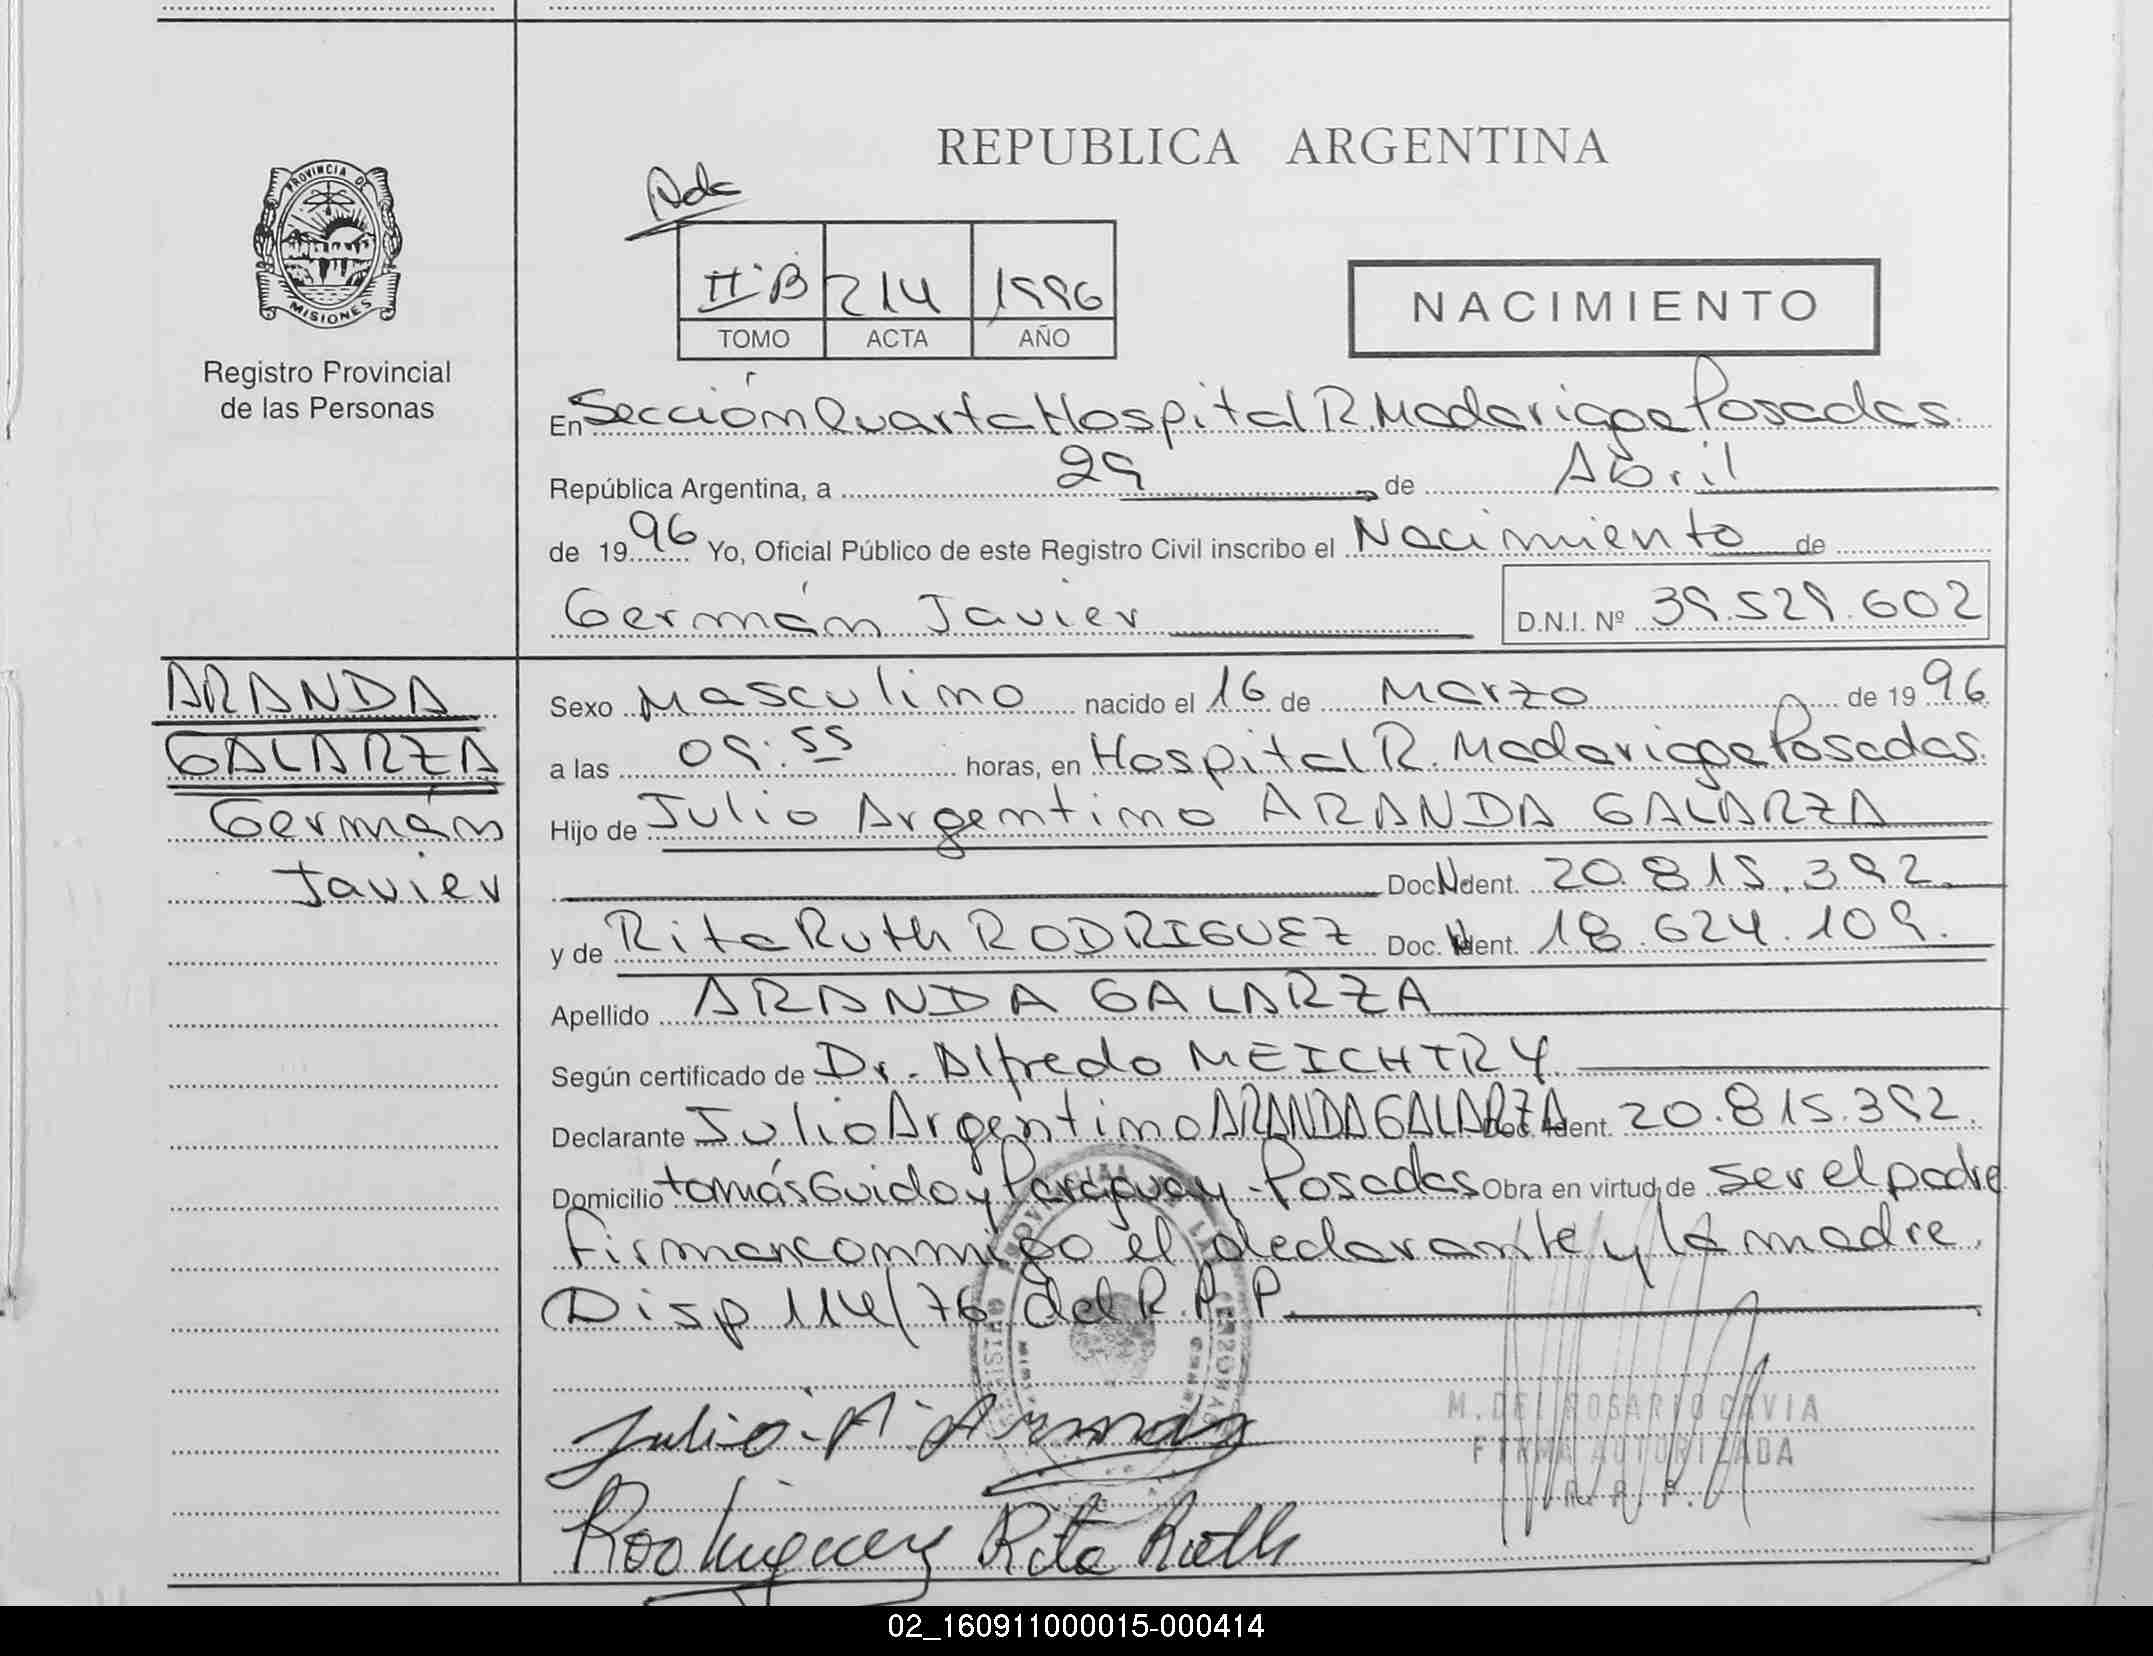 REPUBLICA ARGENTINA
PROVINCIA DE
MISIONES
Registro Provincial
de las Personas
IIºB 214 1996
TOMO ACTA AÑO
NACIMIENTO
En Sección Cuarta Hospital R. Madariaga Posadas.
República Argentina, a 29 de Abril
de 1996 Yo, Oficial Público de este Registro Civil inscribo el Nacimiento de
Germán Javier D.N.I. Nº 39.529.602
ARANDA
GALARZA
Germán
Javier
Sexo Masculino nacido el 16 de Marzo de 1996
a las 09:55 horas, en Hospital R. Madariaga Posadas.
Hijo de Julio Argentino ARANDA GALARZA
Doc. Ident. 20.815.392.
y de Rita Ruth RODRIGUEZ Doc. Ident. 18.624.109.
Apellido ARANDA GALARZA
Según certificado de Dr. Alfredo MEICHTRY
Declarante Julio Argentino ARANDA GALARZA Doc. Ident. 20.815.392.
Domicilio tomás Guido y Paraguay - Posadas Obra en virtud de ser el padre
Firman conmigo el declarante y la madre.
Disp 114/76 del R.P.P.
Julio A. Aranda
M. DEL ROSARIO DAVIA
FIRMA AUTORIZADA
R. P. P.
Rodriguez Rita Ruth
02_160911000015-000414